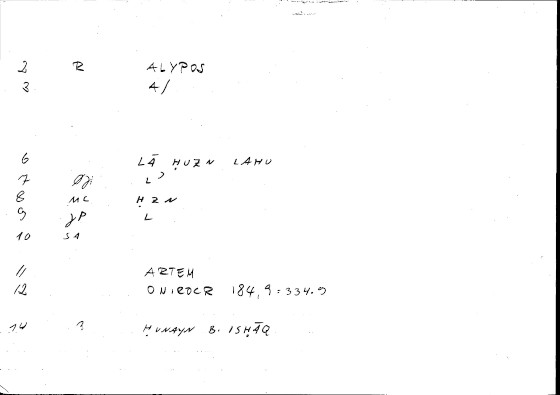 2 R ALYPOS
3 A/
6 LĀ ḤUZN LAHU
7 Øji L'
8 ML ḤZN
9 JP L
10 SA
11 ARTEM
12 ONIROCR 184,9 = 334.9
14 ? ḤUNAYN B. ISḤĀQ